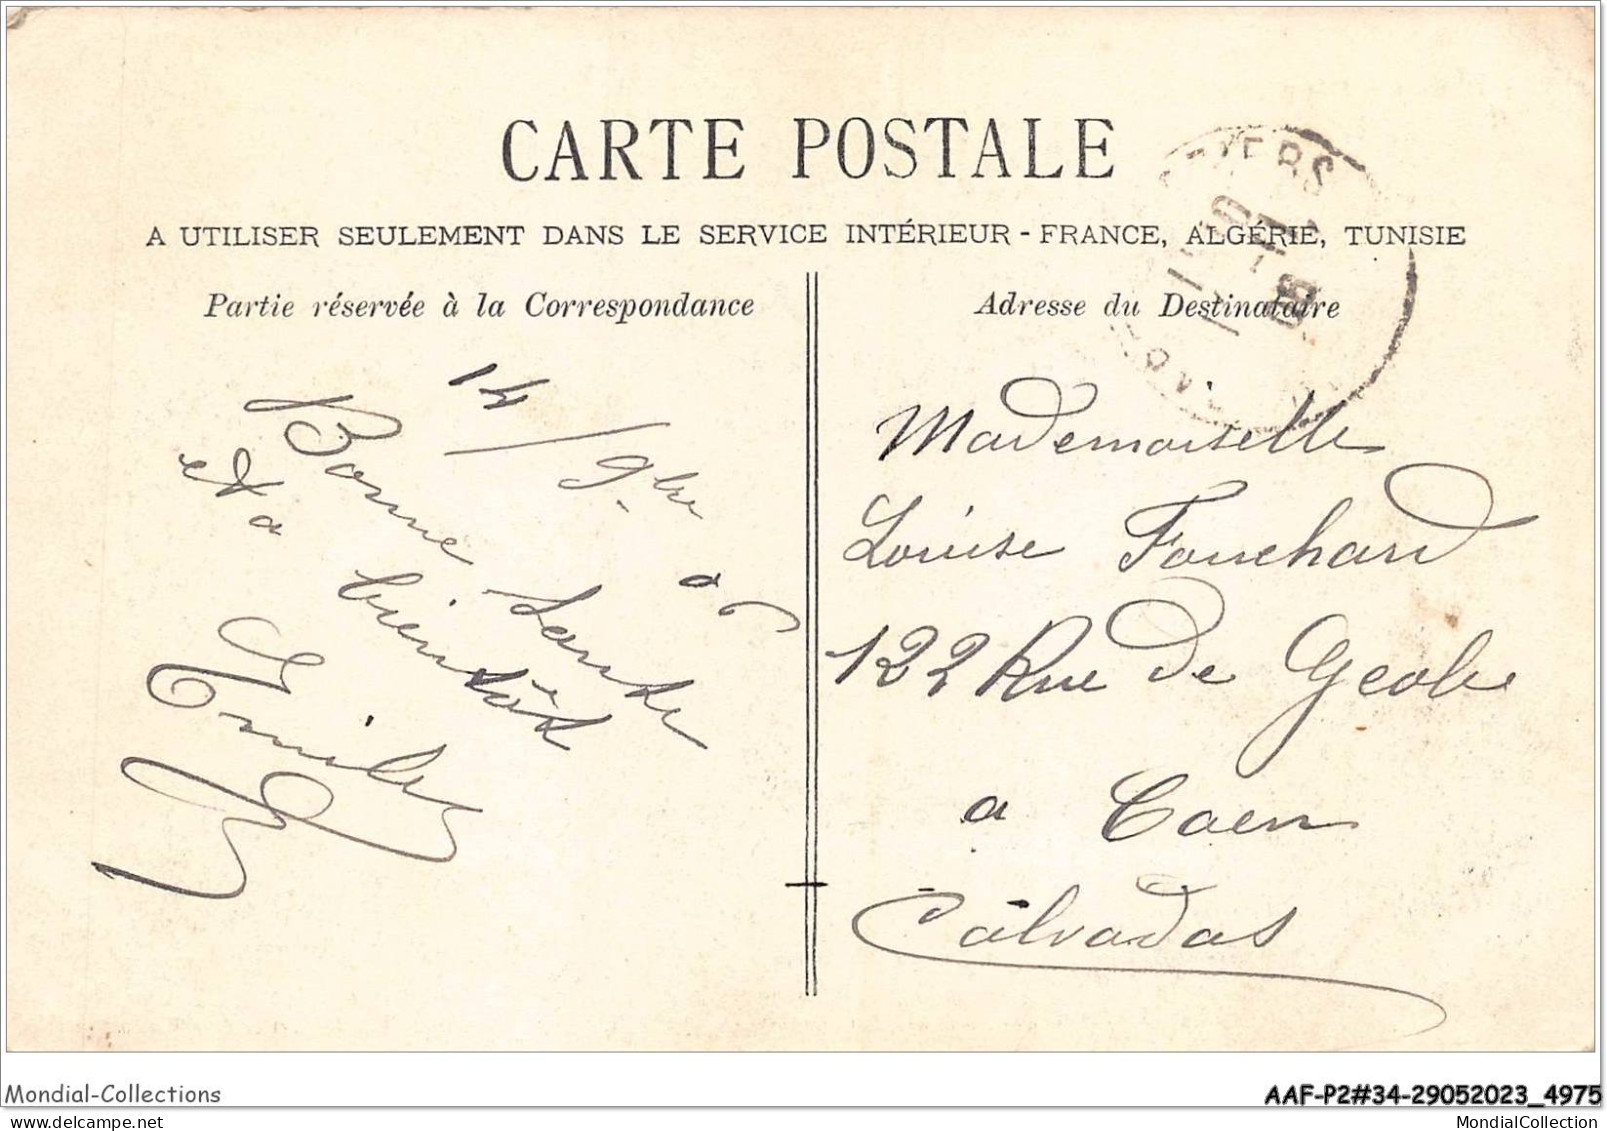 CARTE POSTALE
A UTILISER SEULEMENT DANS LE SERVICE INTÉRIEUR - FRANCE, ALGÉRIE, TUNISIE
Partie réservée à la Correspondance
14/9bre 06
Bonne Santé
et a bientôt
Emile
Adresse du Destinataire
Mademoiselle
Louise Fouchard
122 Rue de Geole
a Caen
Calvados
Mondial-Collections
AAF-P2#34-29052023_4975
delcampe.net
MondialCollection